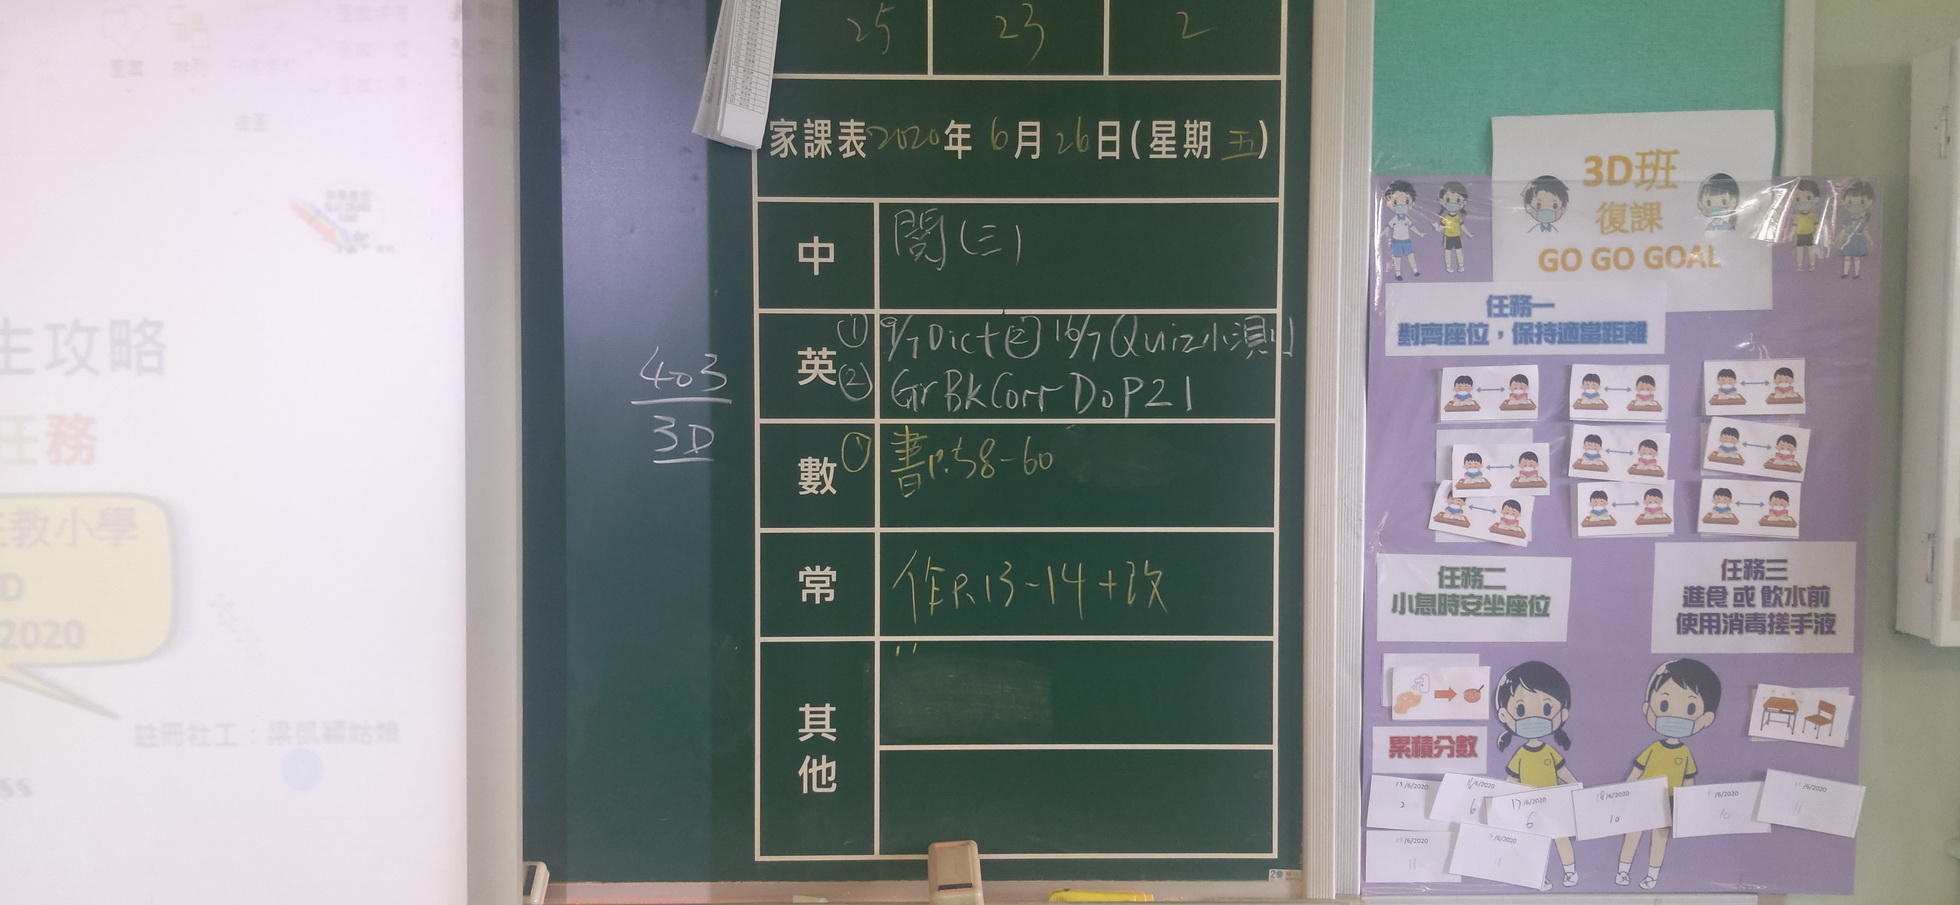 25 23 2
家課表2020年 6月26日(星期五)
中 閱(三)
英 ① 9/7 Dict ② 16/7 Quiz小測
② Gr Bk Corr Do P21
數 ① 書P.58-60
常 作P.13-14+改
其他
403
3D
生攻略
任務
教小學
D
2020
註冊社工：梁凱穎姑娘
ss
3D班
復課
GO GO GOAL
任務一
對齊座位，保持適當距離
任務二
小息時安坐座位
任務三
進食 或 飲水前
使用消毒搓手液
累積分數
15/6/2020
2
/6/2020
6
17/6/2020
6
18/6/2020
10
/6/2020
10
/6/2020
11
/6/2020
11
/6/2020
11